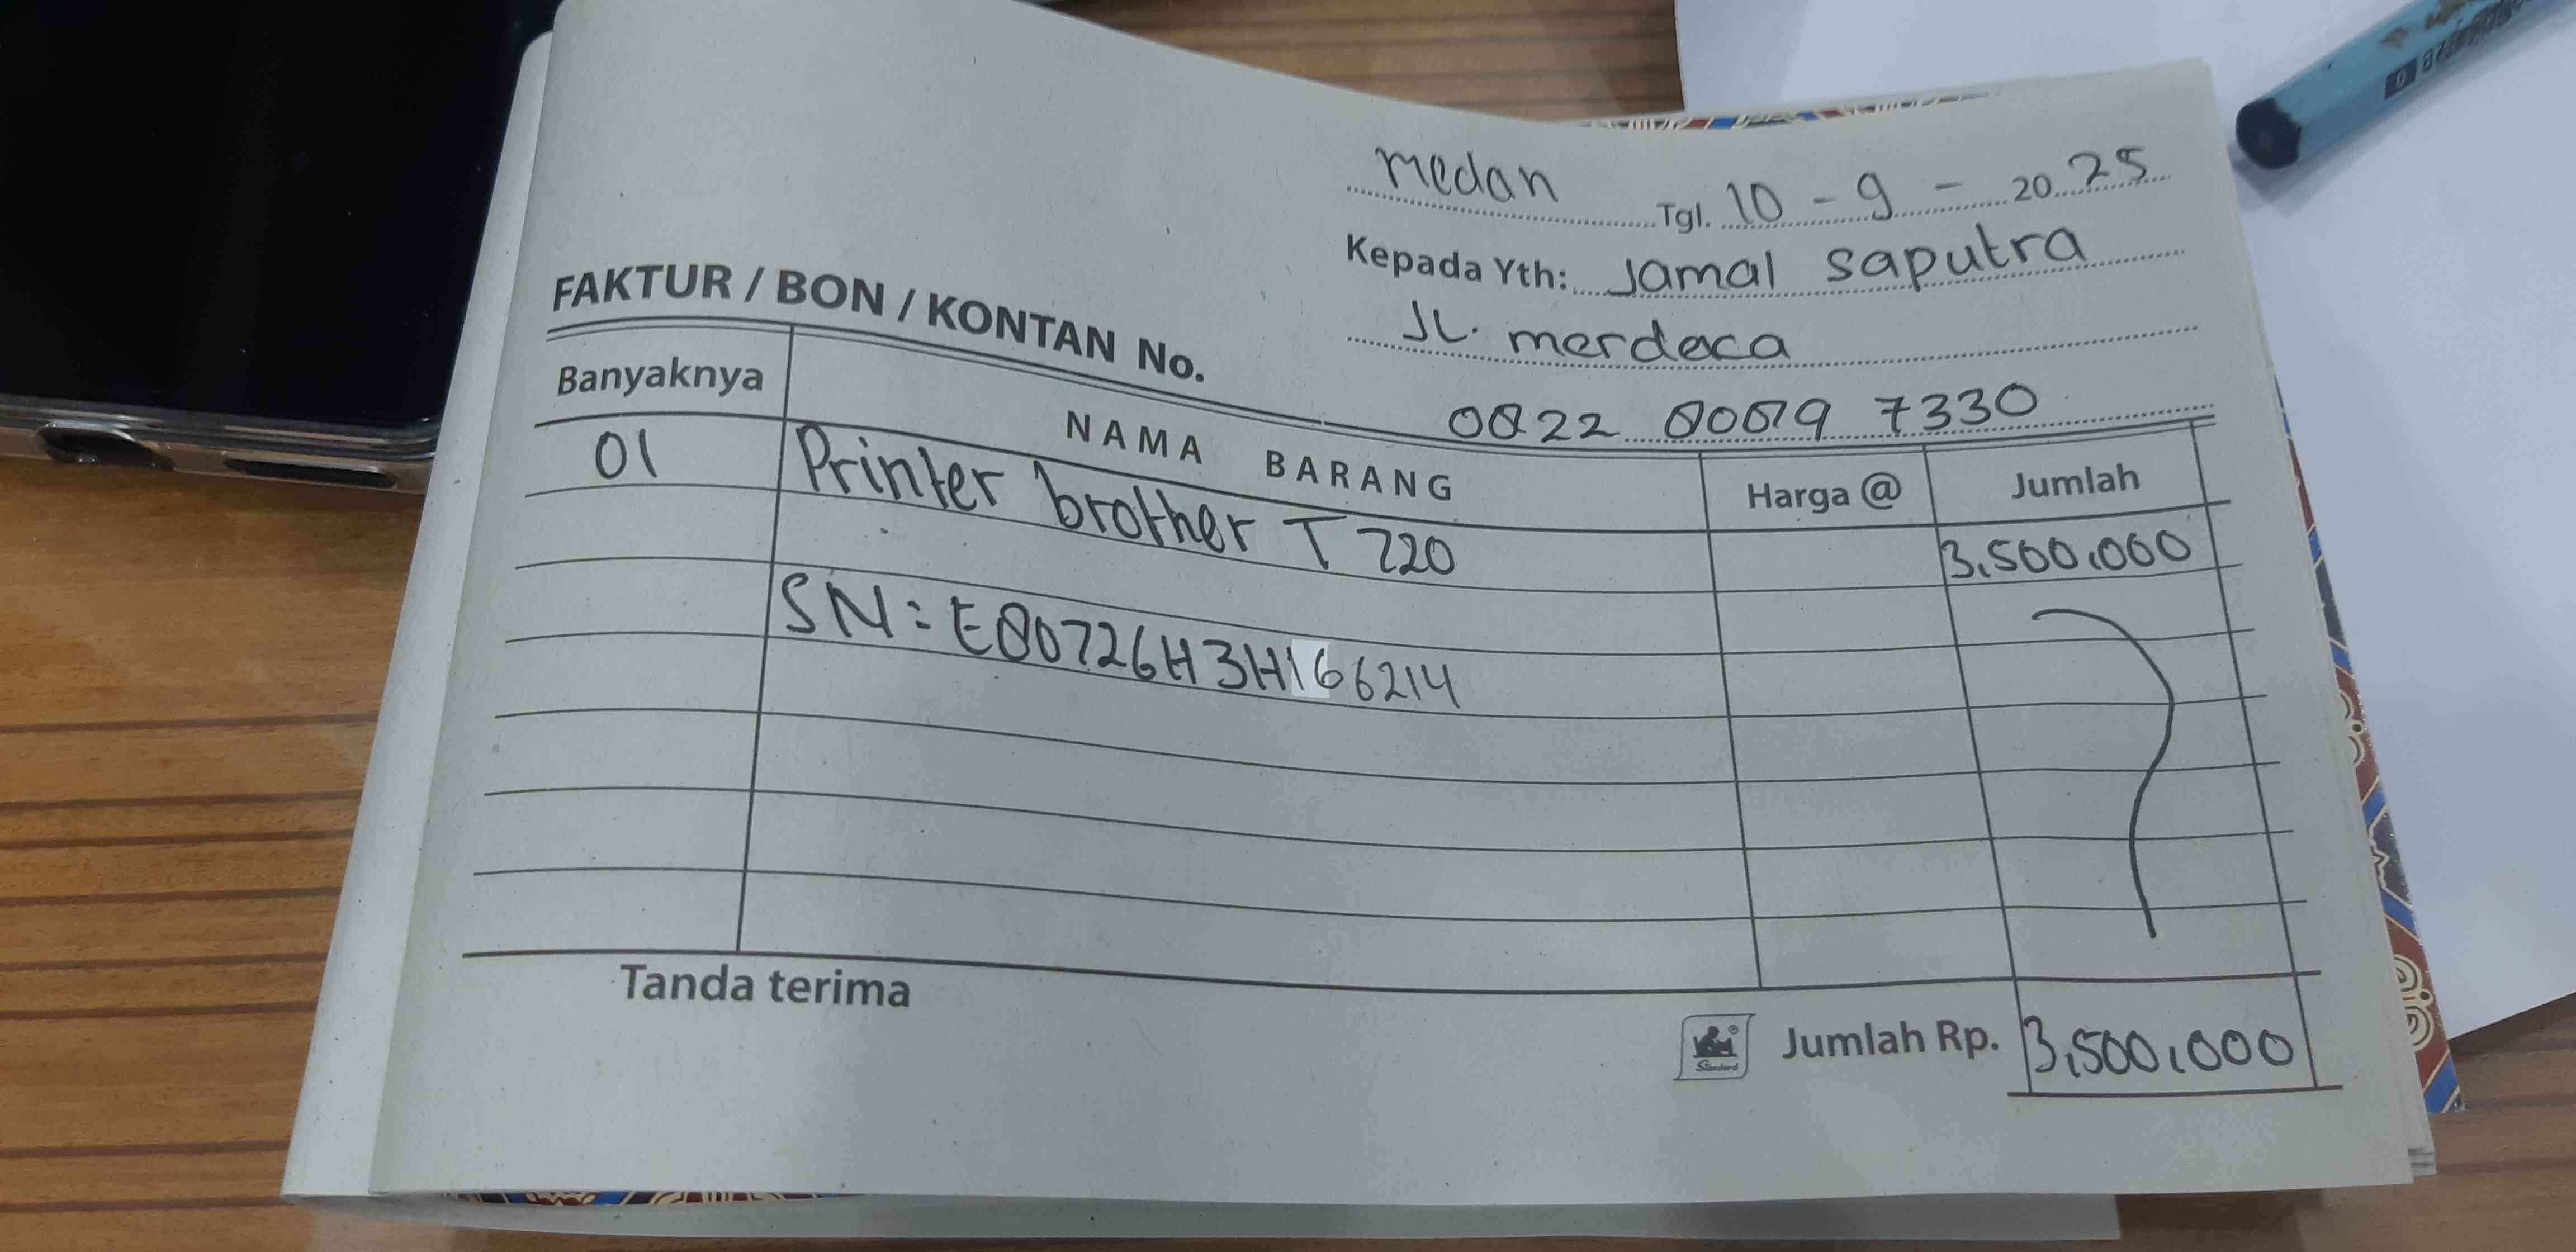 medan Tgl. 10 - 9 - 2025
Kepada Yth: Jamal saputra
JL. merdeca
FAKTUR / BON / KONTAN No.
0822 8089 7330
Banyaknya NAMA BARANG Harga @ Jumlah
01 Printer brother T 720 3.500.000
SN: E80726H3H166214
Tanda terima
Standard
Jumlah Rp. 3.500.000